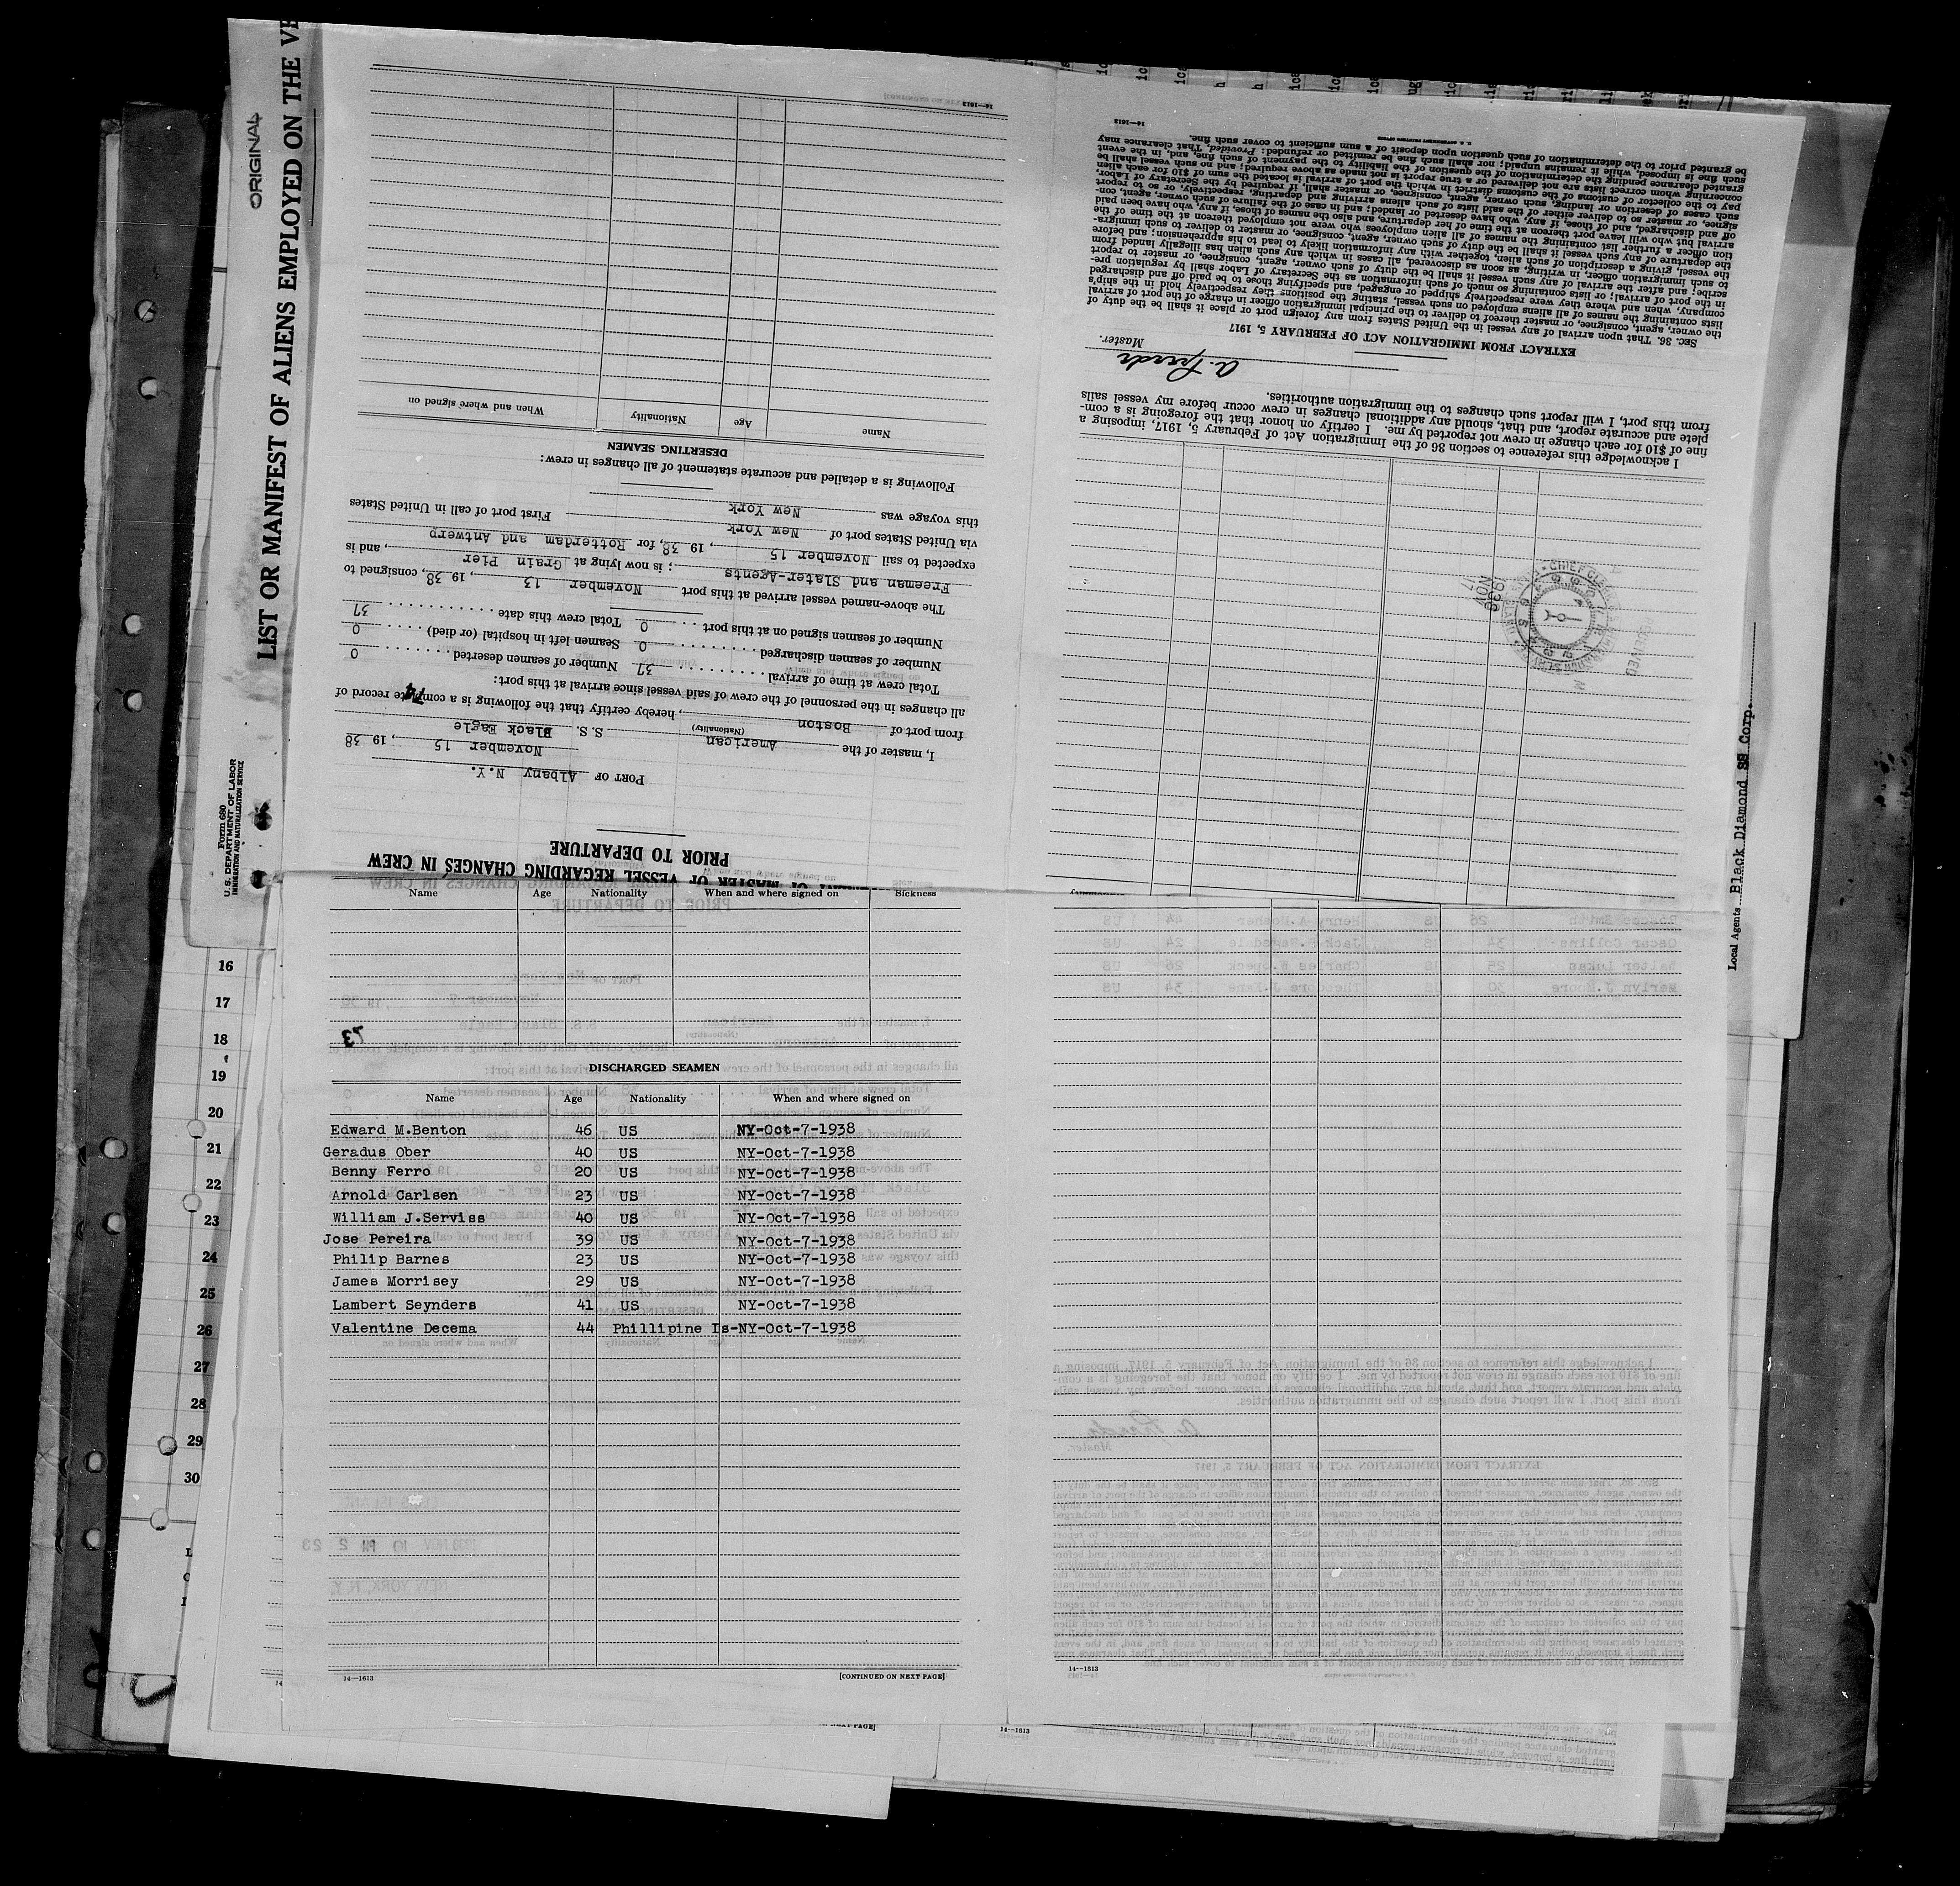 ORIGINAL
LIST OR MANIFEST OF ALIENS EMPLOYED ON THE VE
Form 680
U. S. DEPARTMENT OF LABOR
IMMIGRATION AND NATURALIZATION SERVICE
Local Agents Black Diamond SS Corp.
OF MASTER OF VESSEL REGARDING CHANGES IN CREW
PRIOR TO DEPARTURE
PORT OF Albany N.Y.
November 15, 19 38
I, master of the American S. S. Black Eagle
(Nationality)
from port of Boston, hereby certify that the following is a complete record of
all changes in the personnel of the crew of said vessel since arrival at this port:
74
Total crew at time of arrival 37 Number of seamen deserted 0
Number of seamen discharged 0 Seamen left in hospital (or died) 0
Number of seamen signed on at this port 0 Total crew this date 37
The above-named vessel arrived at this port November 13, 19 38, consigned to
Freeman and Slater-Agents; is now lying at Grain Pier, and is
expected to sail November 15, 19 38, for Rotterdam and Antwerp
via United States port of New York First port of call in United States
this voyage was New York
Following is a detailed and accurate statement of all changes in crew:
DESERTING SEAMEN
Name Age Nationality When and where signed on
14—1613
I acknowledge this reference to section 36 of the Immigration Act of February 5, 1917, imposing a
fine of $10 for each change in crew not reported by me. I certify on honor that the foregoing is a com-
plete and accurate report, and that, should any additional changes in crew occur before my vessel sails
from this port, I will report such changes to the immigration authorities.
Master.
EXTRACT FROM IMMIGRATION ACT OF FEBRUARY 5, 1917
SEC. 36. That upon arrival of any vessel in the United States from any foreign port or place it shall be the duty of
the owner, agent, consignee, or master thereof to deliver to the principal immigration officer in charge of the port of arrival
lists containing the names of all aliens employed on such vessel, stating the positions they respectively hold in the ship's
company, when and where they were respectively shipped or engaged, and specifying those to be paid off and discharged
in the port of arrival; or lists containing so much of such information as the Secretary of Labor shall by regulation pre-
scribe; and after the arrival of any such vessel it shall be the duty of such owner, agent, consignee, or master to report
to such immigration officer, in writing, as soon as discovered, all cases in which any such alien has illegally landed from
the vessel, giving a description of such alien, together with any information likely to lead to his apprehension; and before
the departure of any such vessel it shall be the duty of such owner, agent, consignee, or master to deliver to such immigra-
tion officer a further list containing the names of all alien employees who were not employed thereon at the time of the
arrival but who will leave port thereon at the time of her departure, and also the names of those, if any, who have been paid
off and discharged, and of those, if any, who have deserted or landed; and in case of the failure of such owner, agent, con-
signee, or master so to deliver either of the said lists of such aliens arriving and departing, respectively, or so to report
such cases of desertion or landing, such owner, agent, consignee, or master, shall, if required by the Secretary of Labor,
pay to the collector of customs of the customs district in which the port of arrival is located the sum of $10 for each alien
concerning whom correct lists are not delivered or a true report is not made as above required; and no such vessel shall be
granted clearance pending the determination of the question of the liability to the payment of such fine, and, in the event
such fine is imposed, while it remains unpaid; nor shall such fine be remitted or refunded: Provided, That clearance may
be granted prior to the determination of such question upon deposit of a sum sufficient to cover such fine.
14—1613
Name Age Nationality When and where signed on Sickness
73
DISCHARGED SEAMEN
Name Age Nationality When and where signed on
Edward M.Benton 46 US NY-Oct-7-1938
Geradus Ober 40 US NY-Oct-7-1938
Benny Ferro 20 US NY-Oct-7-1938
Arnold Carlsen 23 US NY-Oct-7-1938
William J.Serviss 40 US NY-Oct-7-1938
Jose Pereira 39 US NY-Oct-7-1938
Philip Barnes 23 US NY-Oct-7-1938
James Morrisey 29 US NY-Oct-7-1938
Lambert Seynders 41 US NY-Oct-7-1938
Valentine Decema 44 Phillipine Is-NY-Oct-7-1938
14—1613 [CONTINUED ON NEXT PAGE]
14—1613
16
17
18
19
20
21
22
23
24
25
26
27
28
29
30
14—1613